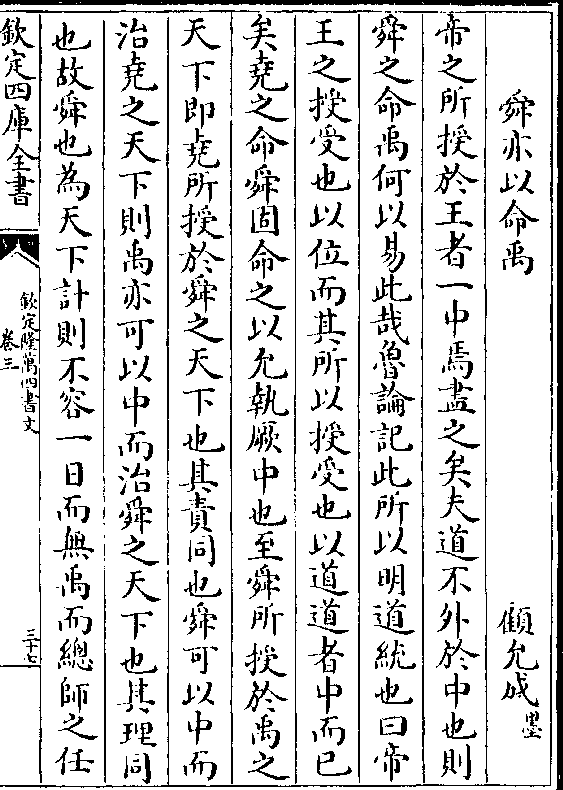 舜亦以命禹 顧允成墨
帝之所授於王者一中焉盡之矣夫道不外於中也則
舜之命禹何以易此哉魯論記此所以明道統也曰帝
王之授受也以位而其所以授受也以道道者中而已
矣堯之命舜固命之以允執厥中也至舜所授於禹之
天下即堯所授於舜之天下也其責同也舜可以中而
治堯之天下則禹亦可以中而治舜之天下也其理同
也故舜也為天下計則不容一日而無禹而總師之任
欽定四庫全書
欽定隆萬四書文
卷三
三十七